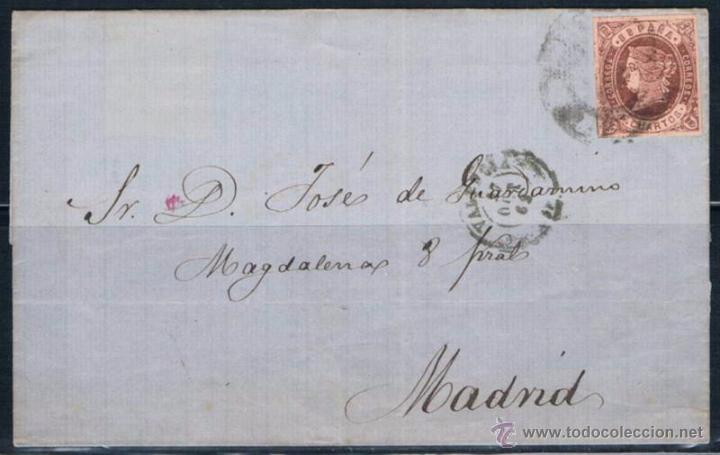 ESPAÑA
CORREOS
CORREOS
CUARTOS
Sr. D. José de Guardamino
Magdalena 8 pral
Madrid
www.todocoleccion.net